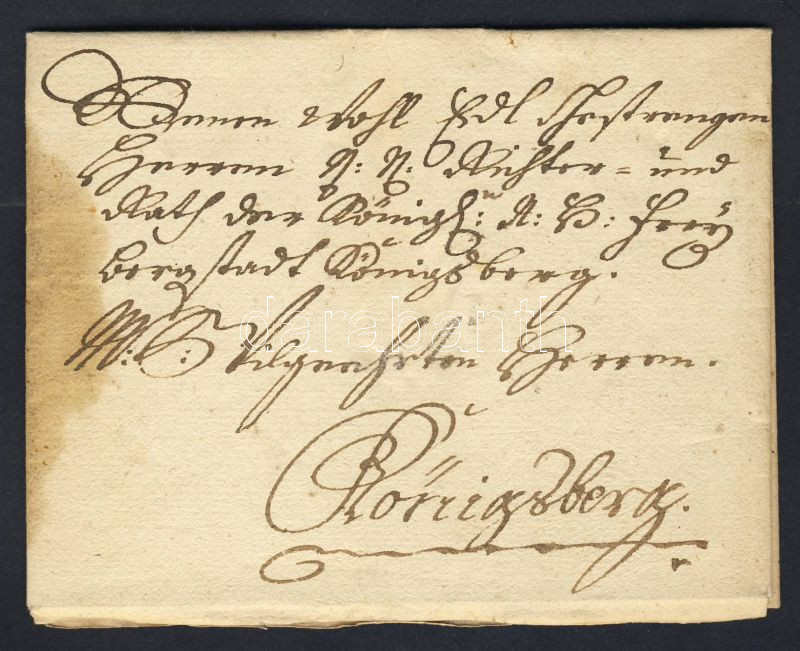 Denen Wohl Edl Gestrengen
Herren N: N: Richter= und
Rath der Königl: N: H: Frey
bergstadt Königsberg.
M: H: Vilgeehrten Herren.
Königsberg.
darabanth